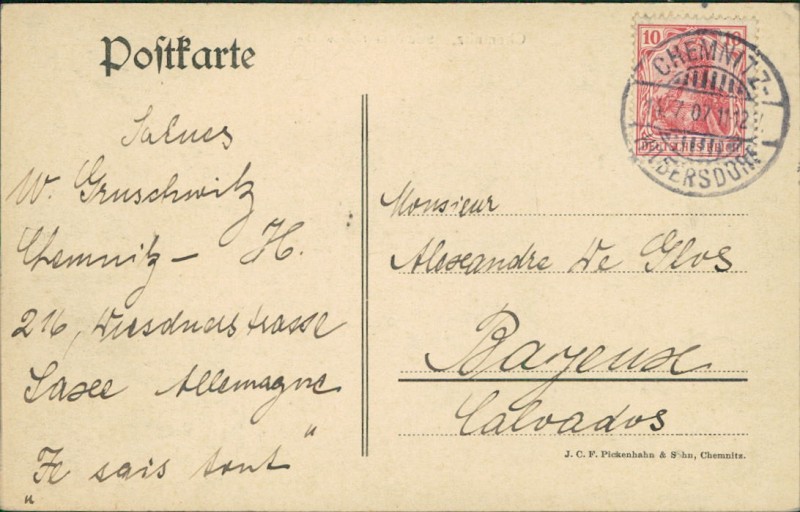 Postkarte
Salues
W. Gruschwitz
Chemnitz – H.
216, Dresdnerstrasse
Saxe Allemagne
"Je sais tout"
10 10
CHEMNITZ-
7.07 11-12
HILBERSDORF
DEUTSCHES REICH
Monsieur
Alexandre De Glos
Bayeux
Calvados
J. C. F. Pickenhahn & Sohn, Chemnitz.